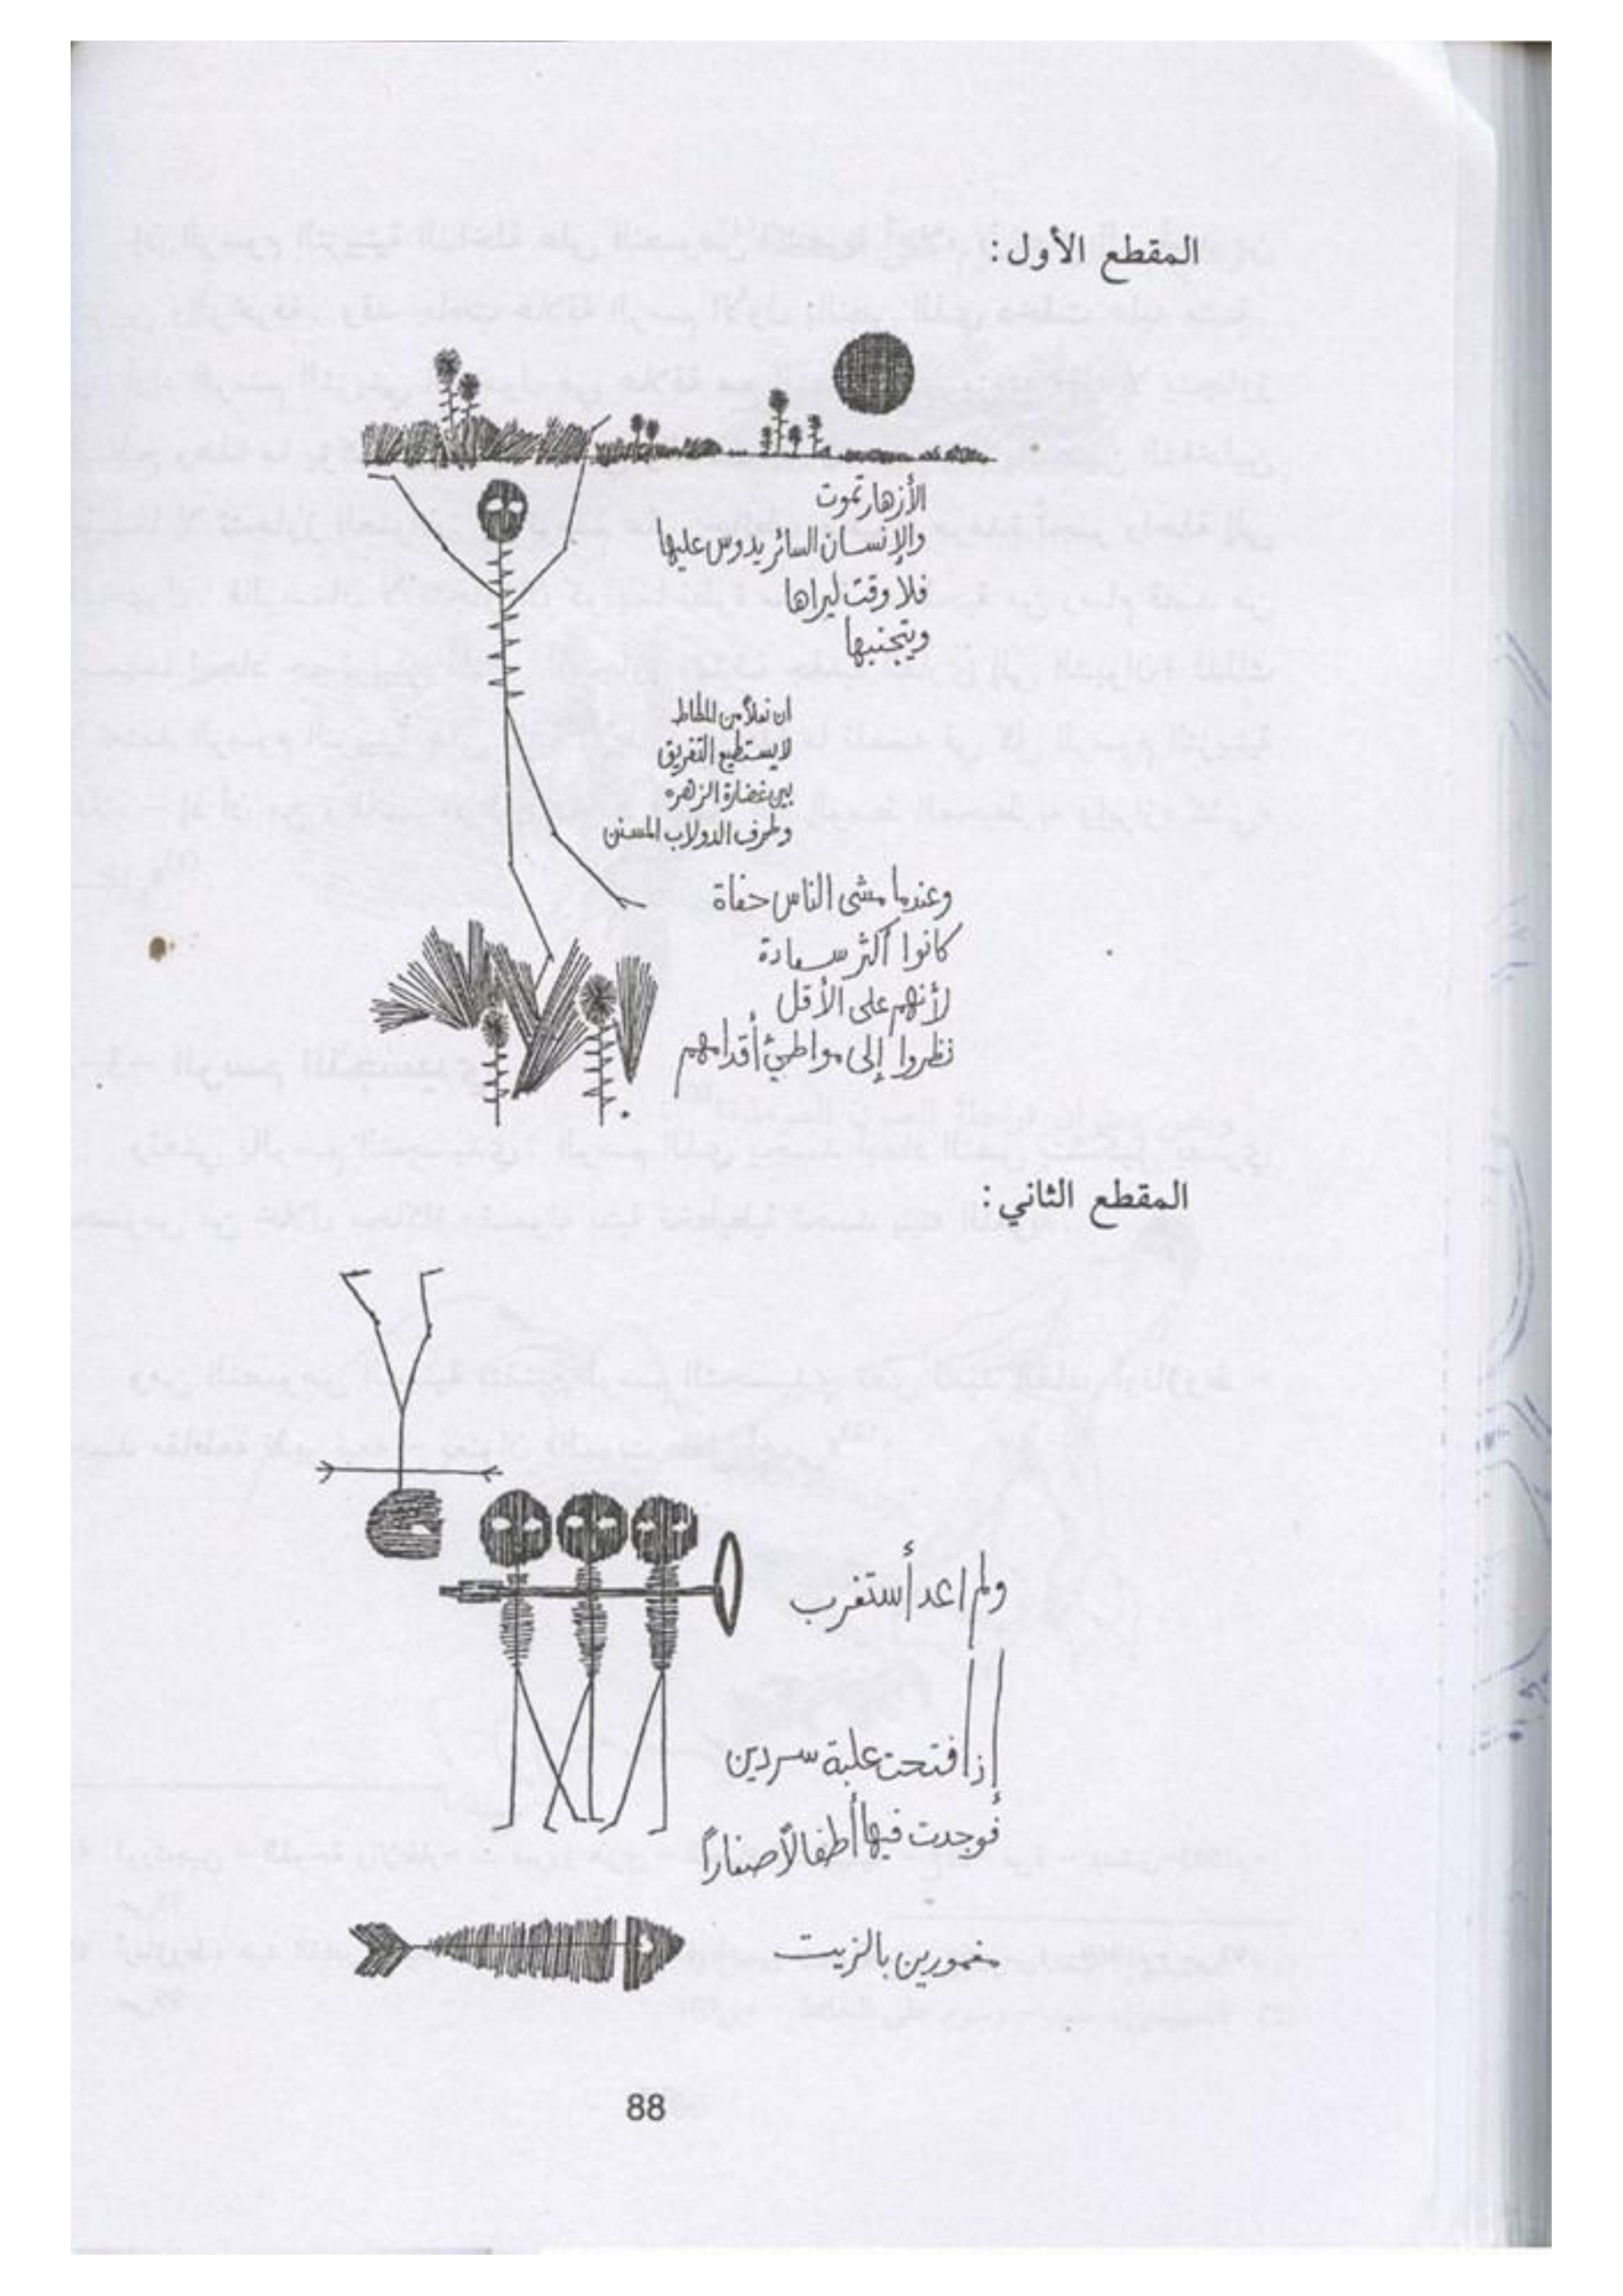 المقطع الأول:
الأزهار تموت
والإنسان السائر يدوس عليها
فلا وقت ليراها
ويتجنبها
ان نعلاً من المطاط
لا يستطيع التفريق
بين غضارة الزهره
وطرف الدولاب المسنن
وعندما مشى الناس حفاة
كانوا أكثر سعادة
لأنهم على الأقل
نظروا إلى مواطئ أقدامهم
المقطع الثاني:
ولم اعد أستغرب
إذا فتحت علبة سردين
فوجدت فيها أطفالاً صغاراً
مغمورين بالزيت
88